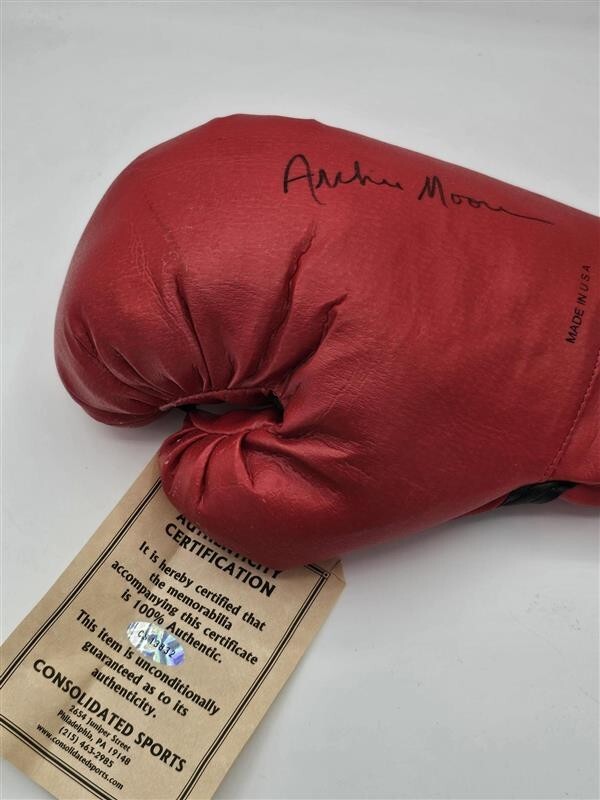 Archie Moore
MADE IN USA
AUTHENTICITY
CERTIFICATION
It is hereby certified that
the memorabilia
accompanying this certificate
is 100% Authentic.
CS43832
This item is unconditionally
guaranteed as to its
authenticity.
CONSOLIDATED SPORTS
2654 Juniper Street
Philadelphia, PA 19148
(215) 463-2985
www.consolidatedsports.com